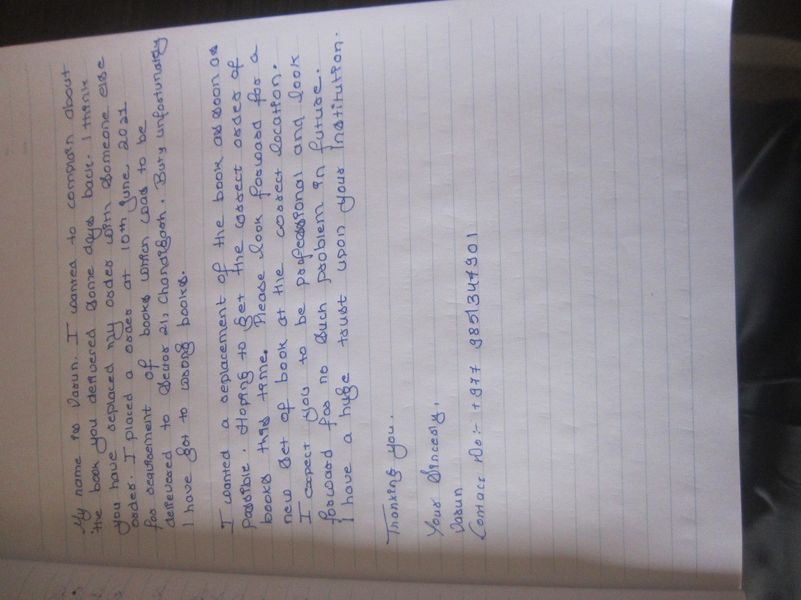 My name is Varun. I wanted to complain about
the book you delivered some days back. I think
you have replaced my order with someone else
order. I placed a order at 10th june 2021
for requirement of books which was to be
delievered to Devus 21, Chandigarh. But, unfortunately
I have got to wrong books.
I wanted a replacement of the book as soon as
possible. Hoping to get the correct order of
books this time. Please look forward for a
new set of book at the correct location.
I expect you to be professional and look
forward for no such problem in future.
I have a huge trust upon your Institution.
Thanking you.
Your Sincerly,
Varun
Contact No:- +977 9851347901